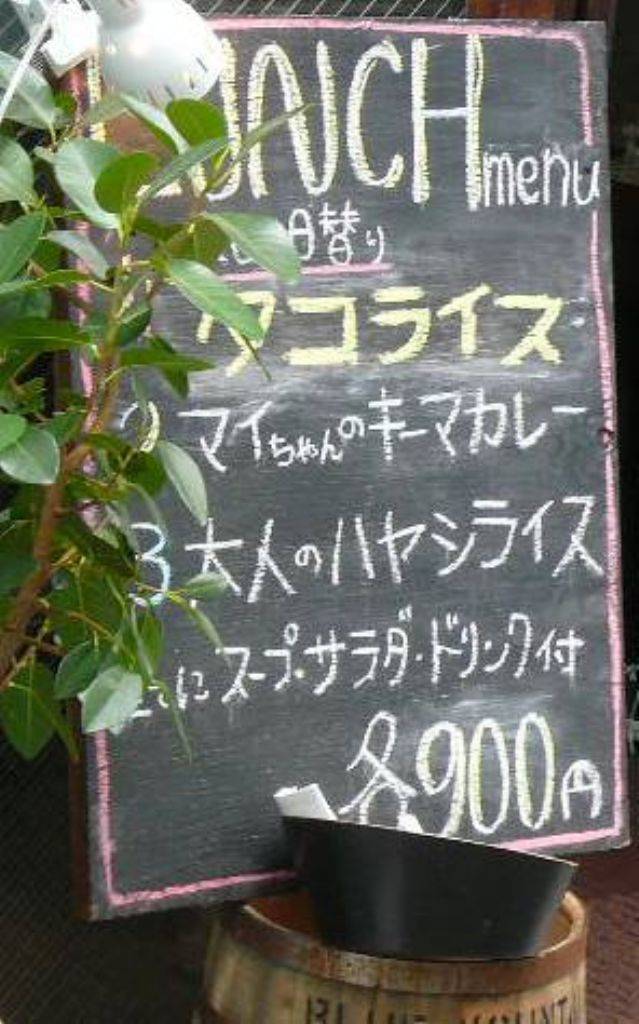 LUNCH menu
日替り
タコライス
マイちゃんのキーマカレー
3. 大人のハヤシライス
スープ・サラダ・ドリンク付
各900円